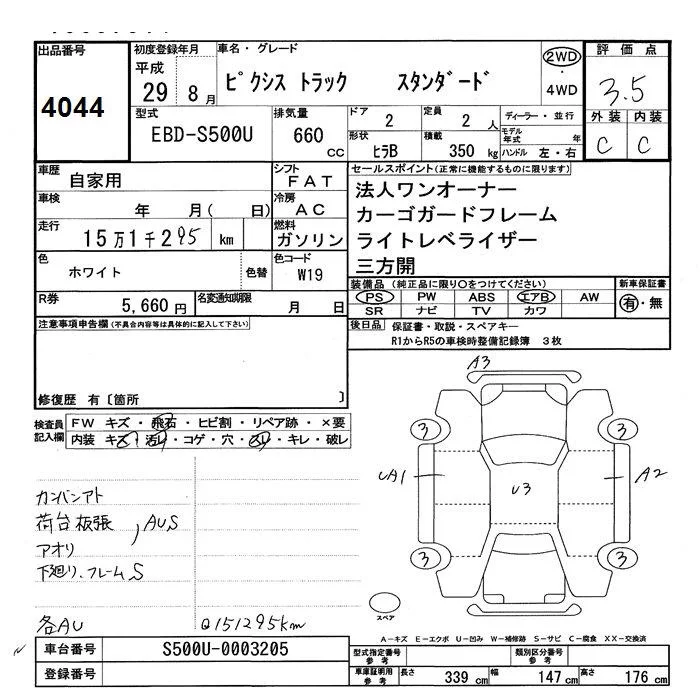 出品番号
4044
初度登録年月
平成
29 8 月
車名・グレード
ピクシス トラック スタンダード
2WD
・
4WD
評価点
3.5
外装 内装
C C
型式
EBD-S500U
排気量
660 CC
ドア
2
定員
2 人
形状
ヒラB
積載
350 kg
ディーラー・並行
モデル年式 年
ハンドル 左・右
車歴
自家用
シフト
FAT
車検
年 月( 日)
冷房
AC
走行
15万1千295 km
燃料
ガソリン
色
ホワイト
色替
色コード
W19
R券
5,660 円
名変通知期限
月 日
セールスポイント(正常に機能するものに限ります)
法人ワンオーナー
カーゴガードフレーム
ライトレベライザー
三方開
装備品(純正品に限り〇をつけてください)
PS PW ABS エアB AW
SR ナビ TV カワ
新車保証書
有・無
後日品 保証書・取説・スペアキー
R1からR5の車検時整備記録簿 3枚
注意事項申告欄(不具合内容等は具体的に記入して下さい)
修復歴 有〔箇所 〕
検査員
記入欄
FW キズ・飛石・ヒビ割・リペア跡・×要
内装 キズ・汚レ・コゲ・穴・スレ・キレ・破レ
カンバンアト
荷台板張, AUS
アオリ
下廻り.フレームS
各AU
Q151295km
A3
3 3
UA1 U3 A2
3 3
スペア
A-キズ E-エクボ U-凹み W-補修跡 S-サビ C-腐食 XX-交換済
車台番号
S500U-0003205
登録番号
型式指定番号
参考
類別区分番号
参考
車庫証明用
参考
長さ 339 cm 幅 147 cm 高さ 176 cm